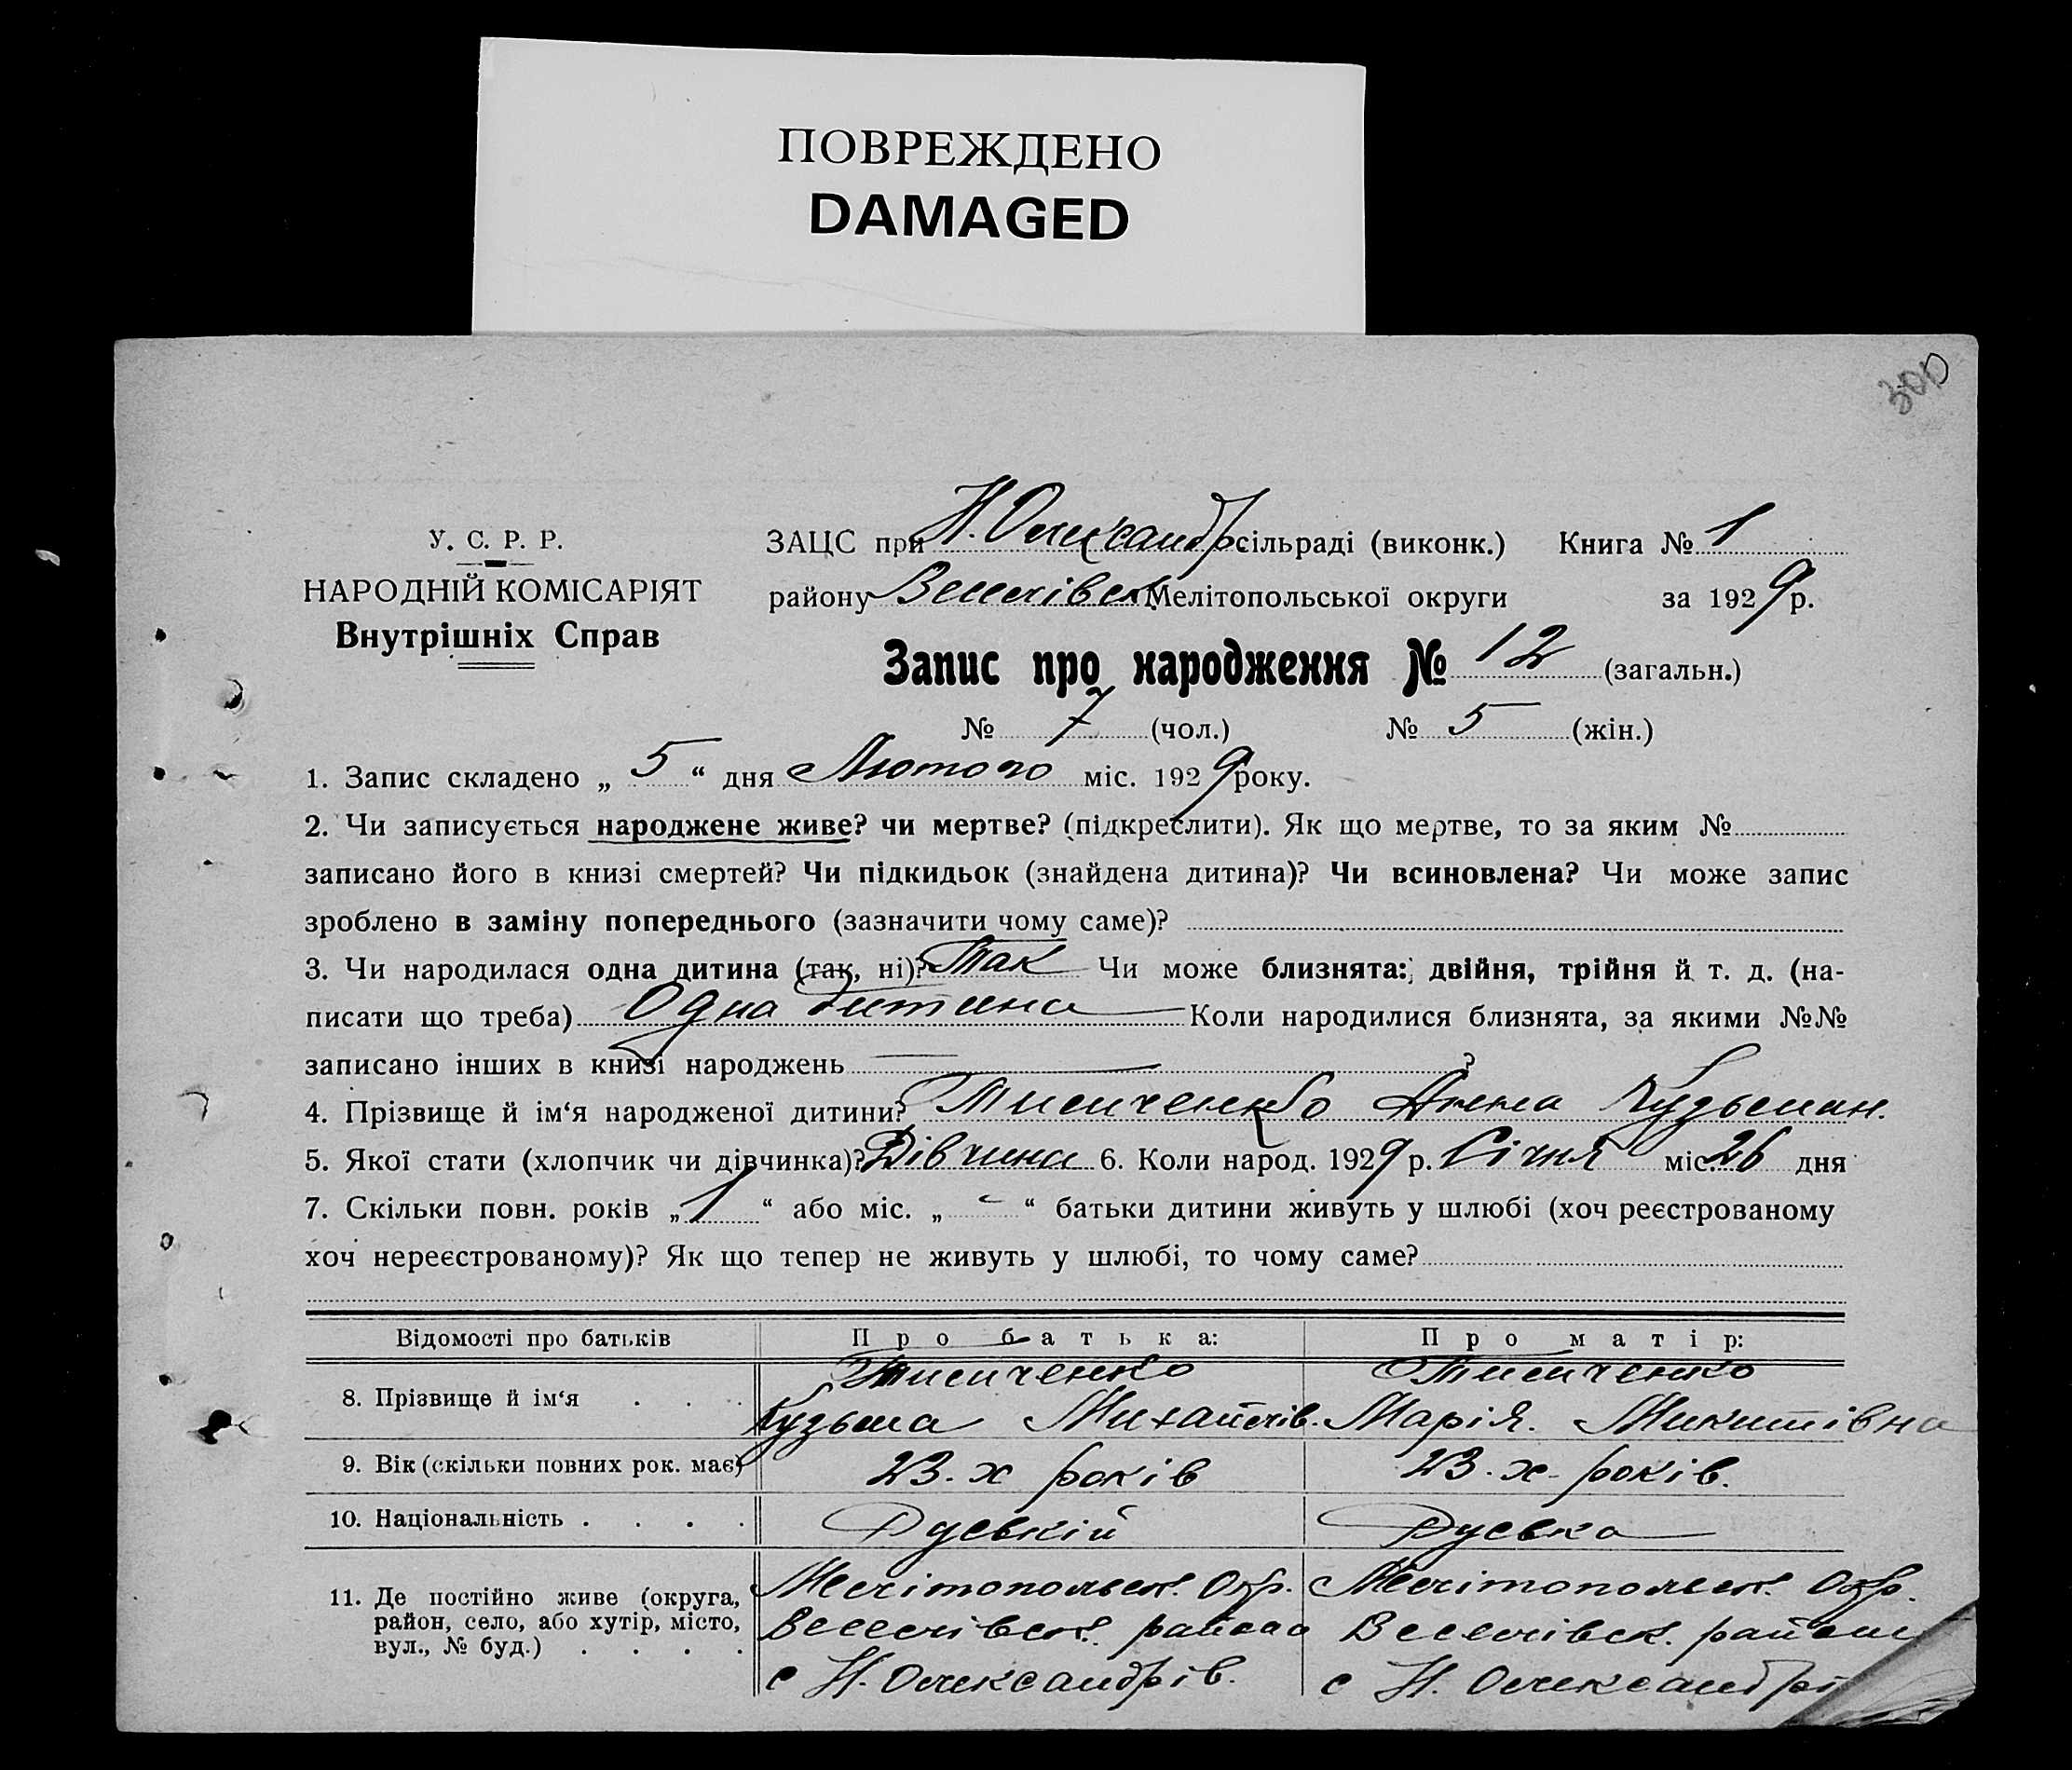 ПОВРЕЖДЕНО
DAMAGED
300
У. С. Р. Р.
НАРОДНІЙ КОМІСАРІЯТ
Внутрішніх Справ
ЗАЦС при Н. Олександр сільраді (виконк.) Книга № 1
району Веселівськ Мелітопольської округи за 1929 р.
Запис про народження № 12 (загальн.)
№ 7 (чол.) № 5 (жін.)
1. Запис складено „ 5 “ дня Лютого міс. 1929 року.
2. Чи записується народжене живе? чи мертве? (підкреслити). Як що мертве, то за яким №
записано його в книзі смертей? Чи підкидьок (знайдена дитина)? Чи всиновлена? Чи може запис
зроблено в заміну попереднього (зазначити чому саме)?
3. Чи народилася одна дитина (так, ні)? Так Чи може близнята: двійня, трійня й т. д. (на-
писати що треба) Одна дитина Коли народилися близнята, за якими №№
записано інших в книзі народжень ?
4. Прізвище й ім‘я народженої дитини? Тисиченко Анна Кузьман.
5. Якої стати (хлопчик чи дівчинка)? Дівчина 6. Коли народ. 1929 р. Січня міс. 26 дня
7. Скільки повн. років „ 1 “ або міс. „ - “ батьки дитини живуть у шлюбі (хоч реєстрованому
хоч нереєстрованому)? Як що тепер не живуть у шлюбі, то чому саме?
Відомості про батьків Про батька: Про матір:
8. Прізвище й ім‘я . . . Тисиченко Тисиченко
Кузьма Михайлів. Марія. Микитівна
9. Вік (скільки повних рок. має) 23-х років 23-х років.
10. Національність . . . . Руський Руська
11. Де постійно живе (округа, Мелітопольськ. Окр. Мелітопольск. Окр.
район, село, або хутір, місто, Веселівськ. району Веселівск. району
вул., № буд.) . . . . с Н. Олександрів. с Н. Олександрі